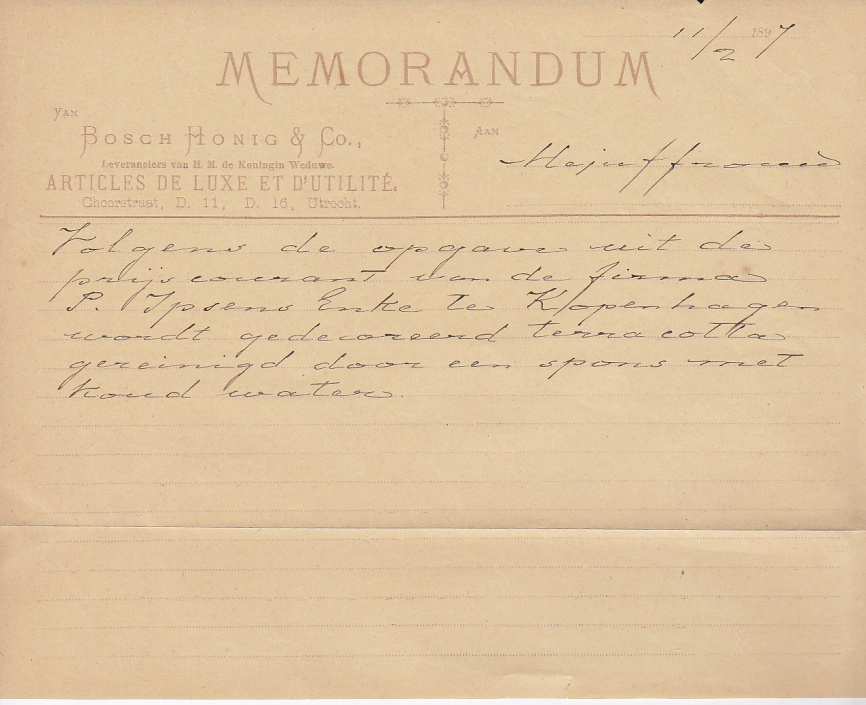 11/2 1897
MEMORANDUM
VAN
BOSCH HONIG & Co.,
AAN
Leveranciers van H. M. de Koningin Weduwe.
Mejuffrouw
ARTICLES DE LUXE ET D'UTILITÉ.
Choorstraat, D. 11, D. 16, Utrecht.
Volgens de opgave uit de
prijscourant van de firma
P. Ipsens Enke te Kopenhagen
wordt gedecoreerd terra cotta
gereinigd door een spons met
koud water.